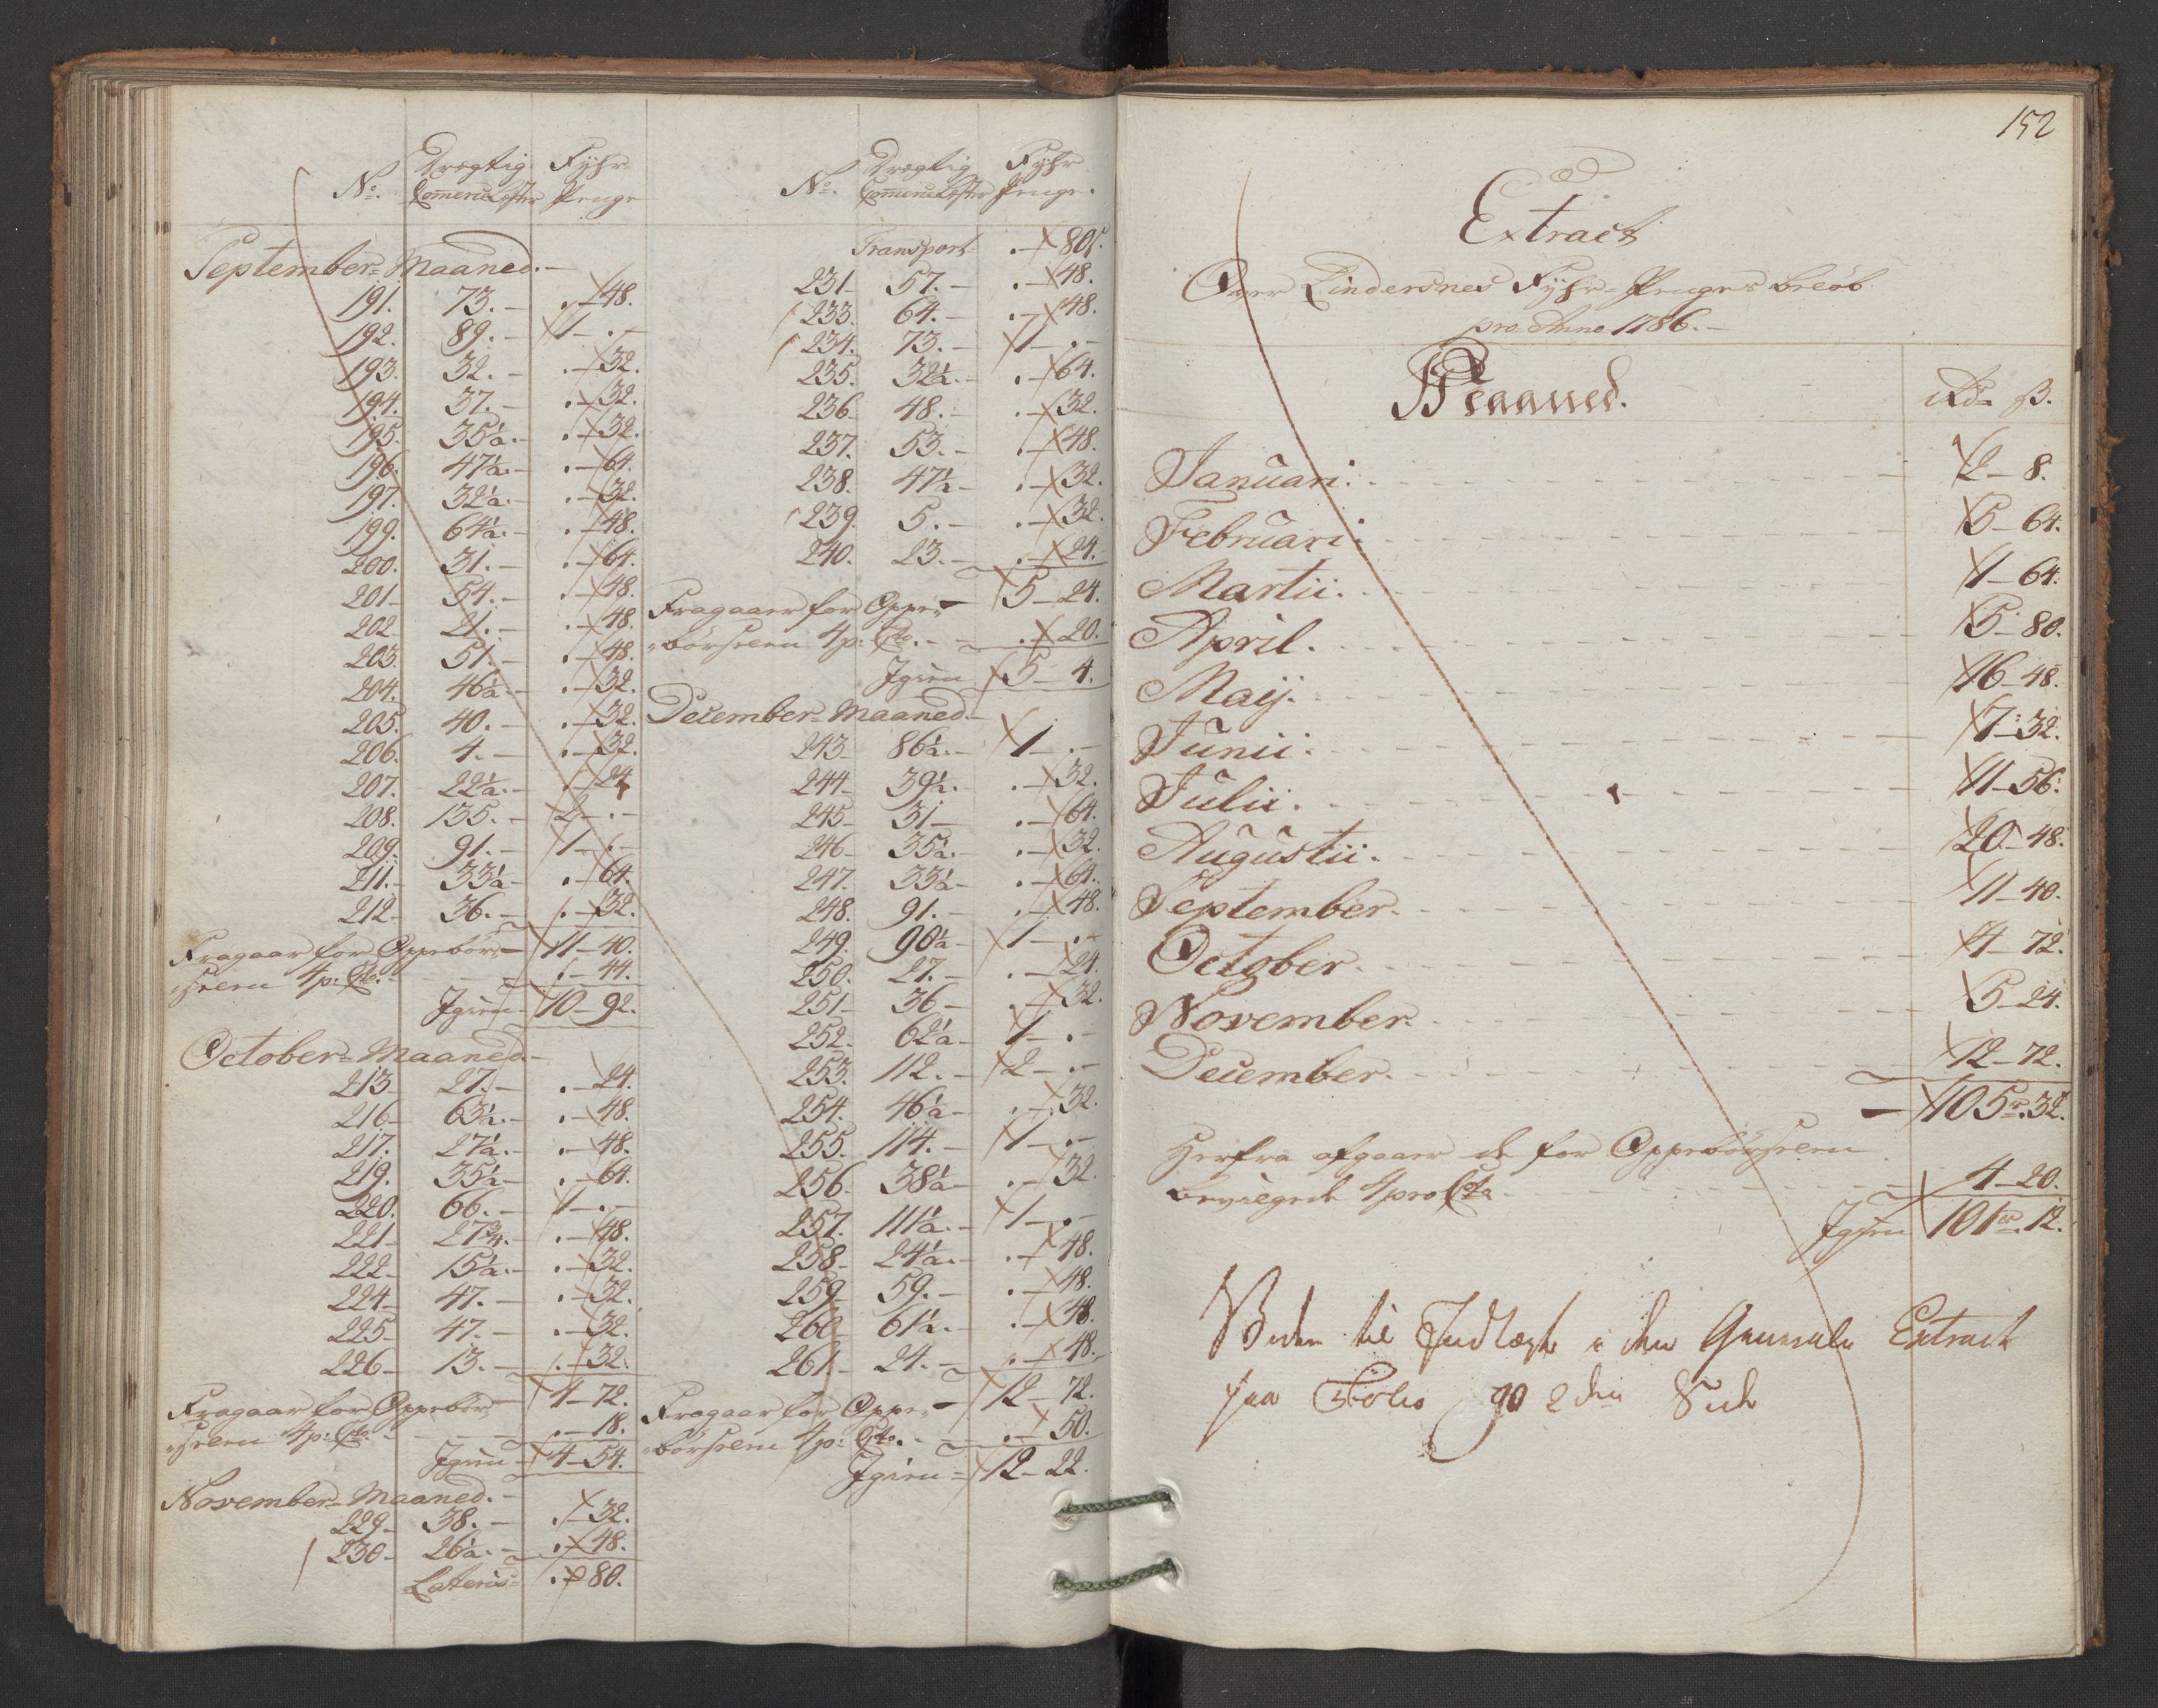 No. Drægtig Commerce Læster Fyhr Penge
September Maaned.
191. 73. . 48.
192. 89. 1 .
193. 32. . 32.
194. 37. . 32.
195. 35½. . 32.
196. 47½. . 64.
197. 32½. . 32.
199. 64½. . 48.
200. 31. . 64.
201 54. . 48.
202 21. . 48.
203 51. . 48.
204. 46½ . 32.
205. 40. . 32.
206. 4. . 32.
207. 22½. . 24
208. 135. 2 .
209. 91. 1 .
211. 33½ . 64.
212 36. . 32.
Fragaar for Oppebör- 11-40.
selen 4 p: Cto. . 44.
Igien 10-92.
October Maaned.
213 27. . 24.
216 63½. . 48.
217. 27½. . 48.
219. 35½ . 64.
220. 66. 1 .
221 27¾. . 48.
222 15½. . 32.
224 47. . 32.
225 47. . 32.
226 13. . 32.
Fragaar for Oppebör- 4-72.
selen 4 p: Cto. . 18.
Igien 4-54.
November Maaned.
229 38. . 32.
230 26½. . 48.
Lateris . 80.
No. Drægtig Commerce Læster Fyhr Penge.
Transport . 80.
231 57. . 48.
233. 64. . 48.
234. 73. 1 .
235. 32½. . 64.
236 48. . 32.
237. 53. . 48.
238. 47½ . 32.
239. 5. . 32.
240. 23. . 24.
Fragaaer for Oppe- 5-24.
börselen 4 p: Cto. . 20.
Igien 5 4.
December Maaned.
243 86½. 1 .
244 39½. . 32.
245 31 . 64.
246 35½. . 32.
247. 33½ . 64.
248. 91. . 48.
249. 90½ 1 .
250. 27. . 24.
251 36 . 32.
252. 62½ 1 .
253. 112. 2 .
254. 46½ . 32.
255. 114. 1 .
256. 38½ . 32.
257. 111½. 1 .
258 24½. . 48.
259 59. . 48.
260 61½. . 48.
261. 24. . 48.
Fragaar for Oppe- 12-72.
börselen 4 p: Cto. . 50.
Igien 12-22.
152
Extract
Over Lindersnes Fyhr-Penges beløb
pro Anno 1786.
Maaned. Rd. ß.
Januari. 2-8.
Februari. 5-64.
Martii. 1-64.
April. 5-80.
Maij. 16-48.
Junii. 7-32.
Julii. 11-56.
Augustii. 20-48.
September. 11-40.
October. 4-72.
November. 5-24.
December. 12-72.
105 r. 32.
Herfra afgaaer de for Oppebörselen
4-20.
bevilgede 4 pro Cto
Igien 101 r. 12.
til Indtægt i den Generale Extract
paa Folio 90 2den Side